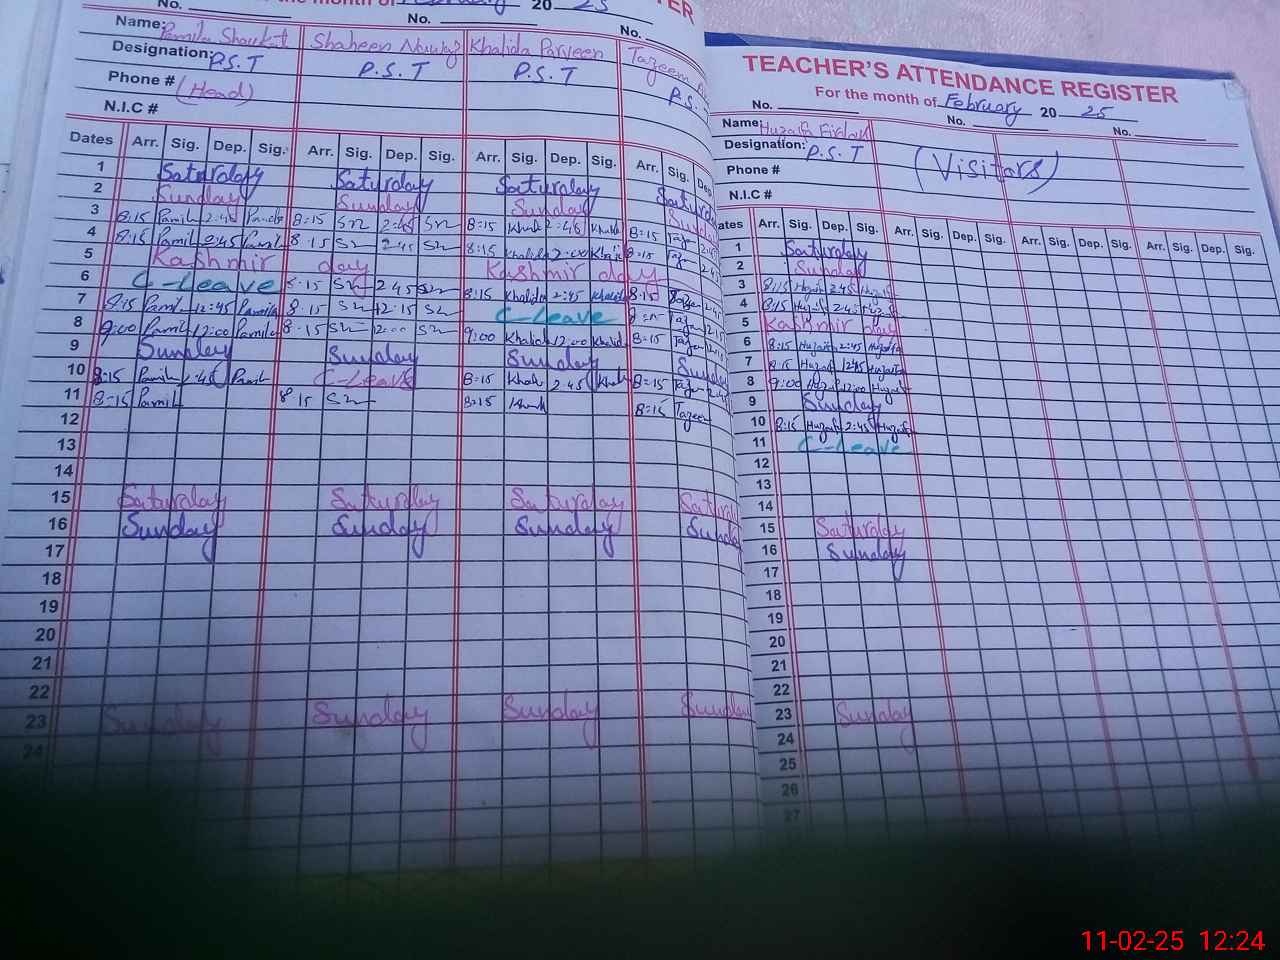 the month of February 20 25
No. No. No.
Name: Pamila Shoukat Shaheen Nawaz Khalida Parveen Tazeem
Designation: P.S.T P.S.T P.S.T P.S.
Phone # (Head)
N.I.C #
Dates Arr. Sig. Dep. Sig. Arr. Sig. Dep. Sig. Arr. Sig. Dep. Sig. Arr. Sig. Dep.
1 Saturday Saturday Saturday Saturd
2 Sunday Sunday Sunday Sunda
3 8:15 Pamil 2:45 8:15 Sn 2:45 Sn 8:15 Khali 2:45 Khali 8:15 Taze
4 8:15 Pamil 2:45 Pamil 8:15 Sn 2:45 Sn 8:15 Khalida 2:00 Khali 8:15 Tazee 2:45
5 Kashmir day Kashmir day
6 C-Leave 8:15 Sn 2:45 Sn 8:15 Khalida 2:45 Khalid 8:15 Tazee 2:45
7 8:15 Pamil 12:45 Pamila 8:15 Sn 12:15 Sn C-Leave Tazee 12:15
8 9:00 Pamil 12:00 Pamila 8:15 Sn 12:00 Sn 9:00 Khalida 12:00 Khalid 8:15 Tazee
9 Sunday Sunday Sunday Sunday
10 8:15 Pamil 2:45 Pamil C-Leave 8:15 Khali 2:45 Khali 8:15 Taze 2:45
11 8:15 Pamil 8:15 Sn 8:15 Khali 8:15 Tazeem
12
13
14
15 Saturday Saturday Saturday Saturd
16 Sunday Sunday Sunday Sunda
17
18
19
20
21
22
23 Sunday Sunday Sunday Sunday
24
TEACHER'S ATTENDANCE REGISTER
For the month of February 20 25
No. No. No.
Name: Huzaifa Firdous
Designation: P.S.T (Visitors)
Phone #
N.I.C #
ates Arr. Sig. Dep. Sig. Arr. Sig. Dep. Sig. Arr. Sig. Dep. Sig. Arr. Sig. Dep. Sig.
1 Saturday
2 Sunday
3 8:15 Huzaifa 2:45 Huzaifa
4 8:15 Huzaifa 2:45 Huzaifa
5 Kashmir day
6 8:15 Huzaifa 2:45 Huzaifa
7 8:15 Huzaifa 12:45 Huzaifa
8 9:00 Huzaifa 12:00 Huzaifa
9 Sunday
10 8:15 Huzaifa 2:45 Huzaifa
11 C-Leave
12
13
14
15 Saturday
16 Sunday
17
18
19
20
21
22
23 Sunday
24
25
26
27
11-02-25 12:24